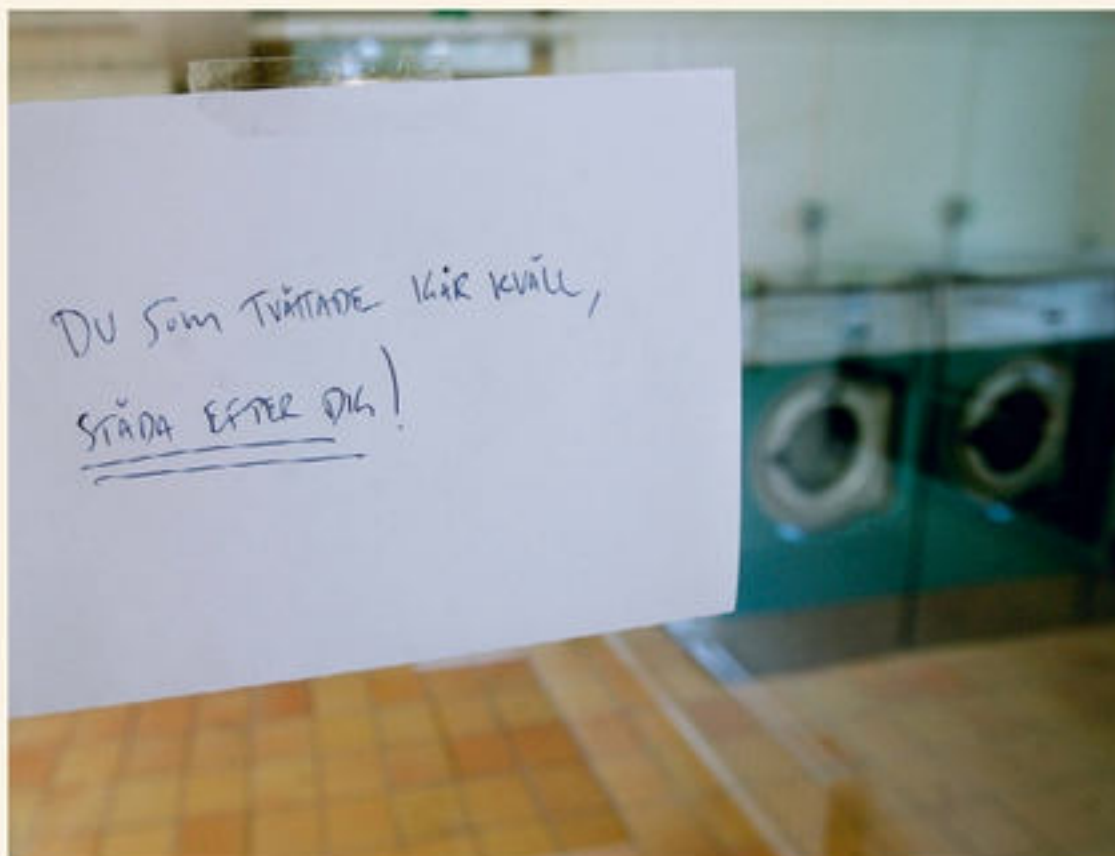 DU SOM TVÄTTADE IGÅR KVÄLL,
STÄDA EFTER DIG!